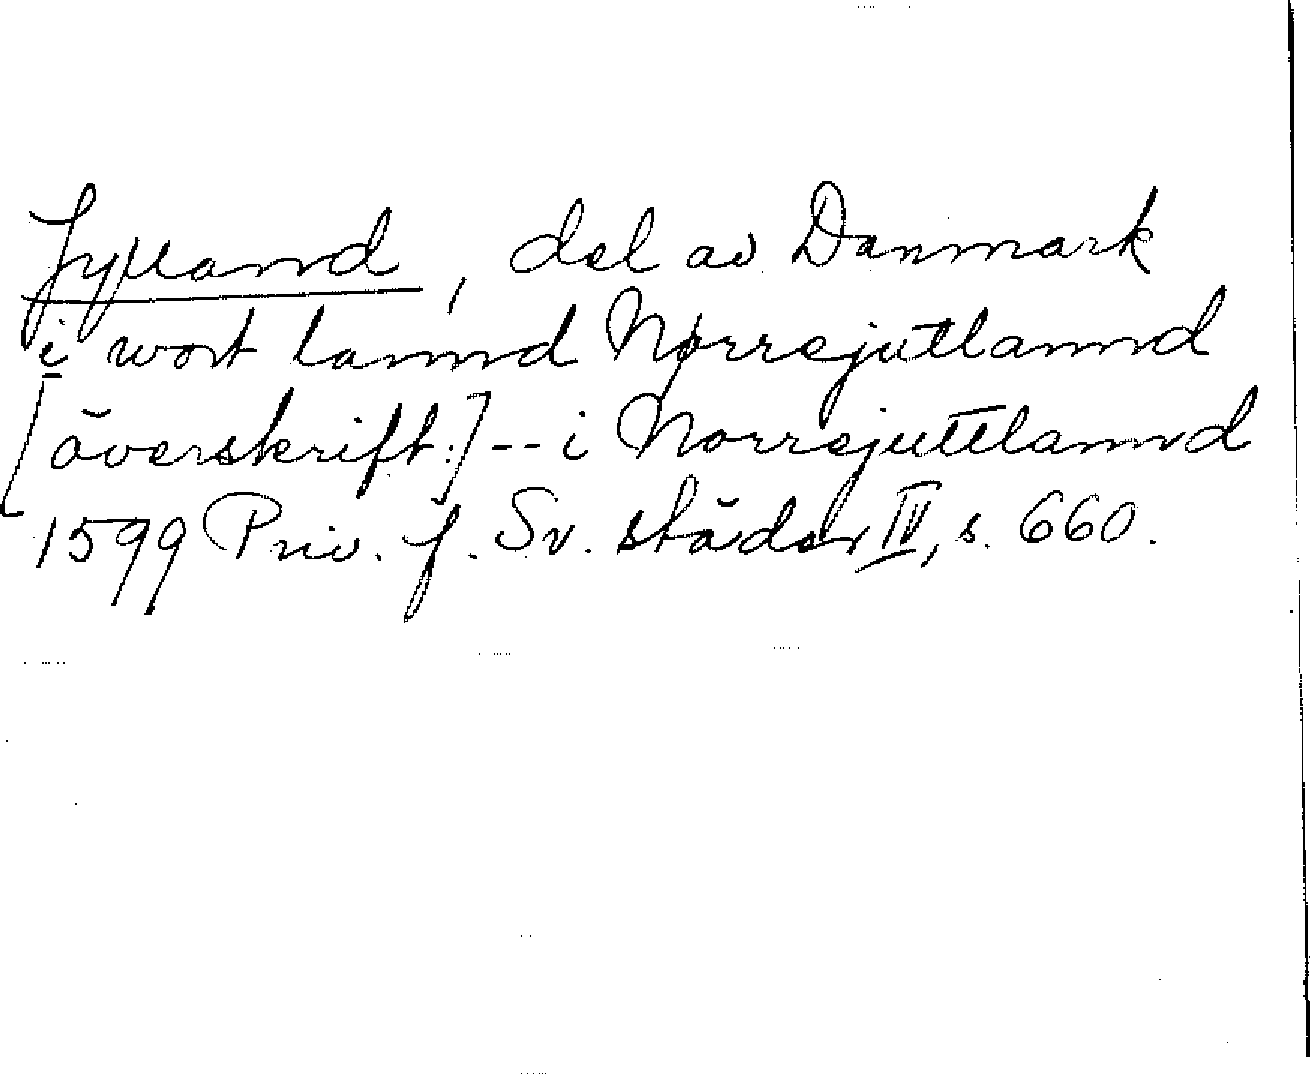 Jylland, del av Danmark
i wort lannd Nørrejutlannd
[överskrift:] -- i Norrejuttlannd
1599 Priv. f. Sv. städer IV, s. 660.